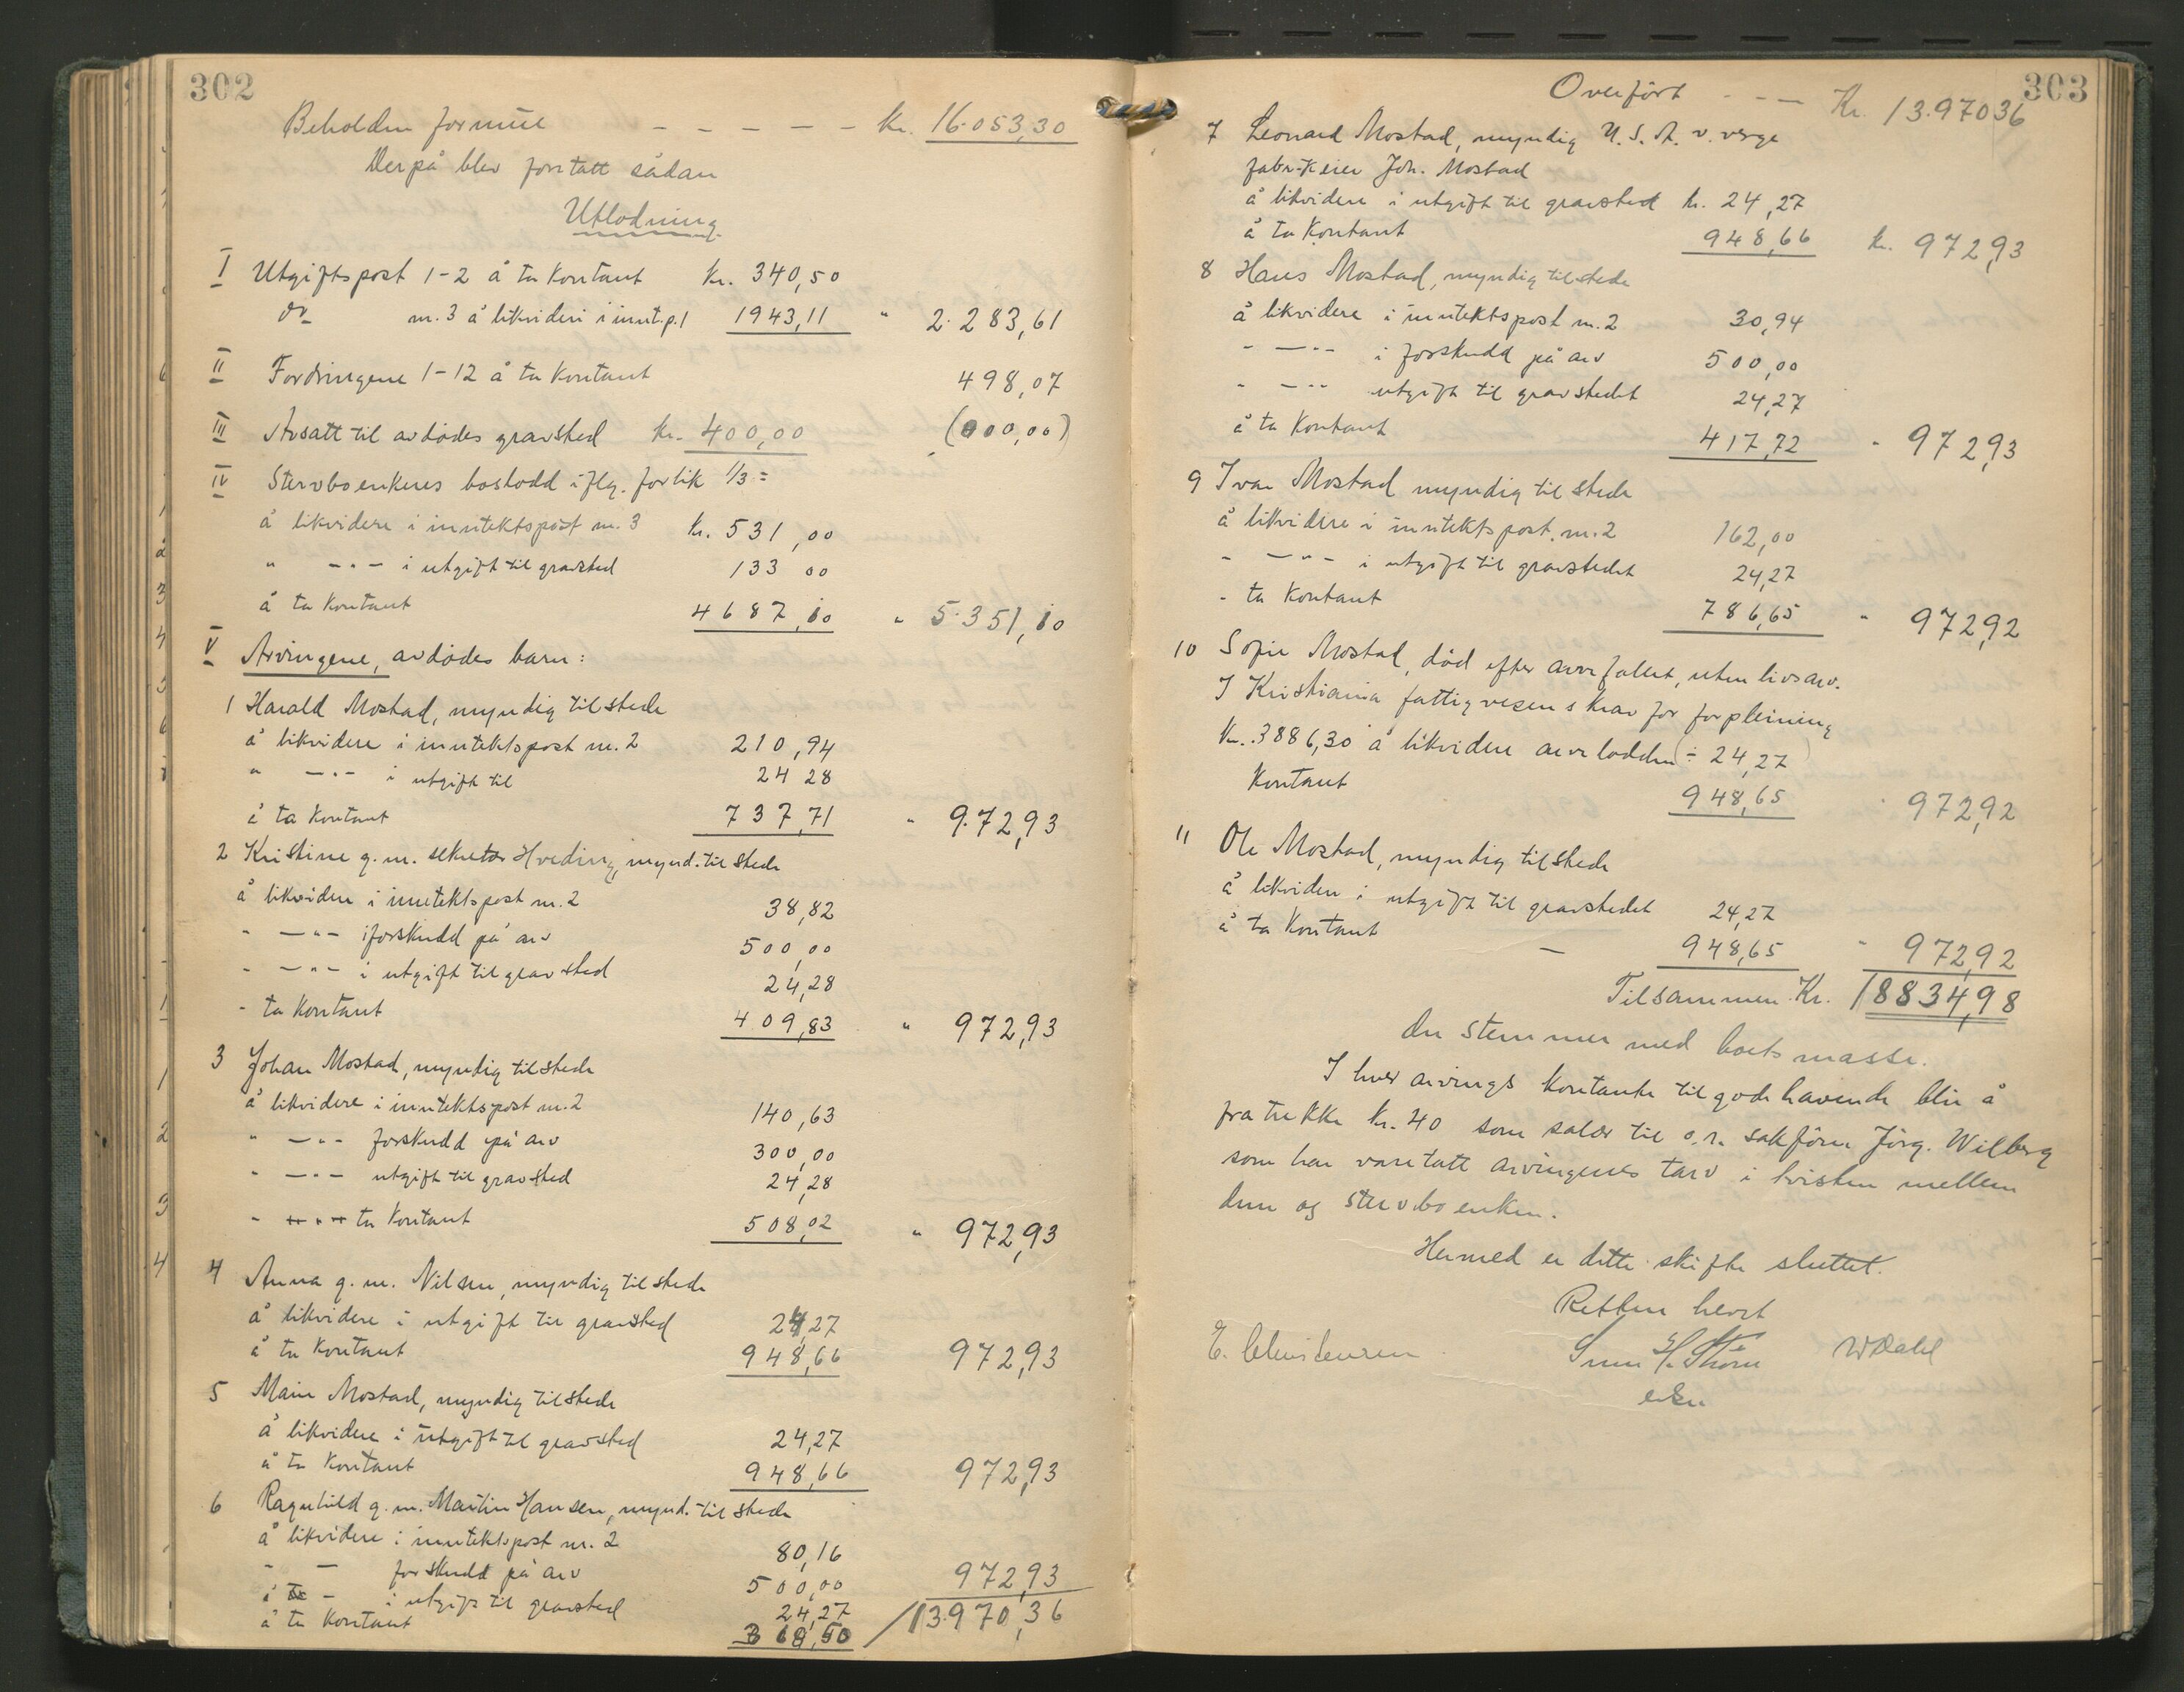 302
Beholden formue - - - - - kr. 16.053,30
Derpå blev foretatt sådan
Utlodning
I Utgiftspost 1-2 å ta kontant kr. 340,50
do nr. 3 å likvidere i innt.p.1 1943,11 " 2.283,61
II Fordringene 1-12 å ta kontant 498,07
III Avsatt til avdödes gravsted kr. 400,00 (000,00)
IV Stervboenkenes boslodd iflg. forlik 1/3 =
å likvidere i inntektspost nr. 3 kr. 531,00
" -"- i utgift til gravsted 133 00
å ta kontant 4687,10 " 5.351,10
V Arvingene, avdödes barn:
1 Harald Mostad, myndig tilstede
å likvidere i inntektspost nr. 2 210,94
" -"- i utgift til 24 28
å ta kontant 737,71 " 972,93
2 Kristine g.m. sekretær Hveding, mynd. tilstede
å likvidere i inntektspost nr. 2 38,82
" -"- i forskudd på arv 500,00
" -"- i utgift til gravsted 24,28
- ta kontant 409,83 " 972,93
3 Johan Mostad, myndig tilstede
å likvidere i inntektspost nr. 2 140,63
" -"- forskudd på arv 300,00
" -"- utgift til gravsted 24,28
" ta kontant 508,02 " 972,93
4 Anna g.m. Nilsen, myndig tilstede
å likvidere i utgift til gravsted 24,27
å ta kontant 948,66 972,93
5 Marie Mostad, myndig tilstede
å likvidere i utgift til gravsted 24,27
å ta kontant 948,66 972,93
6 Ragnhild g.m. Martin Hansen, mynd. tilstede
å likvidere i inntektspost nr. 2 80,16
" - forskudd på arv 500,00 972,93
i utgift til gravsted 24,27 13.970,36
å ta kontant 368,50
303
Overført - - - Kr. 13.97036
7 Leonard Mostad, myndig U.S.A. v. verge
fabrikeier Joh. Mostad
å likvidere i utgift til gravsted kr. 24,27
å ta kontant 948,66 kr. 972,93
8 Hans Mostad, myndig tilstede
å likvidere i inntektspost nr. 2 30,94
" -"- i forskudd på arv 500,00
" -"- utgift til gravstedet 24,27
å ta kontant 417,72 " 972,93
9 Ivar Mostad myndig tilstede
å likvidere i inntektspost nr. 2 162,00
" -"- i utgift til gravstedet 24,27
- ta kontant 786,65 " 972,92
10 Sofie Mostad, död efter arvefallet, uten livsarv.
I Kristiania fattigvesens krav for forpleining
kr. 3886,30 å likvidere arvelodden (÷ 24,27)
kontant 948,65 " 972,92
11 Ole Mostad, myndig tilstede
å likvidere i utgift til gravstedet 24,27
å ta kontant - 948,65 " 972,92
Tilsammen Kr. 18834,98
der stemmer med boets masse.
I hver arvings kontante tilgodehavende blir å
fratrekke kr. 40 som salær til o.r. sakförer Jörg. Wilberg
som har varetatt arvingenes tarv i tvisten mellem
dem og stervboenken.
Hermed er dette skifte sluttet.
Retten hevet
E. Christensen Sven H. Thorn W Dahl